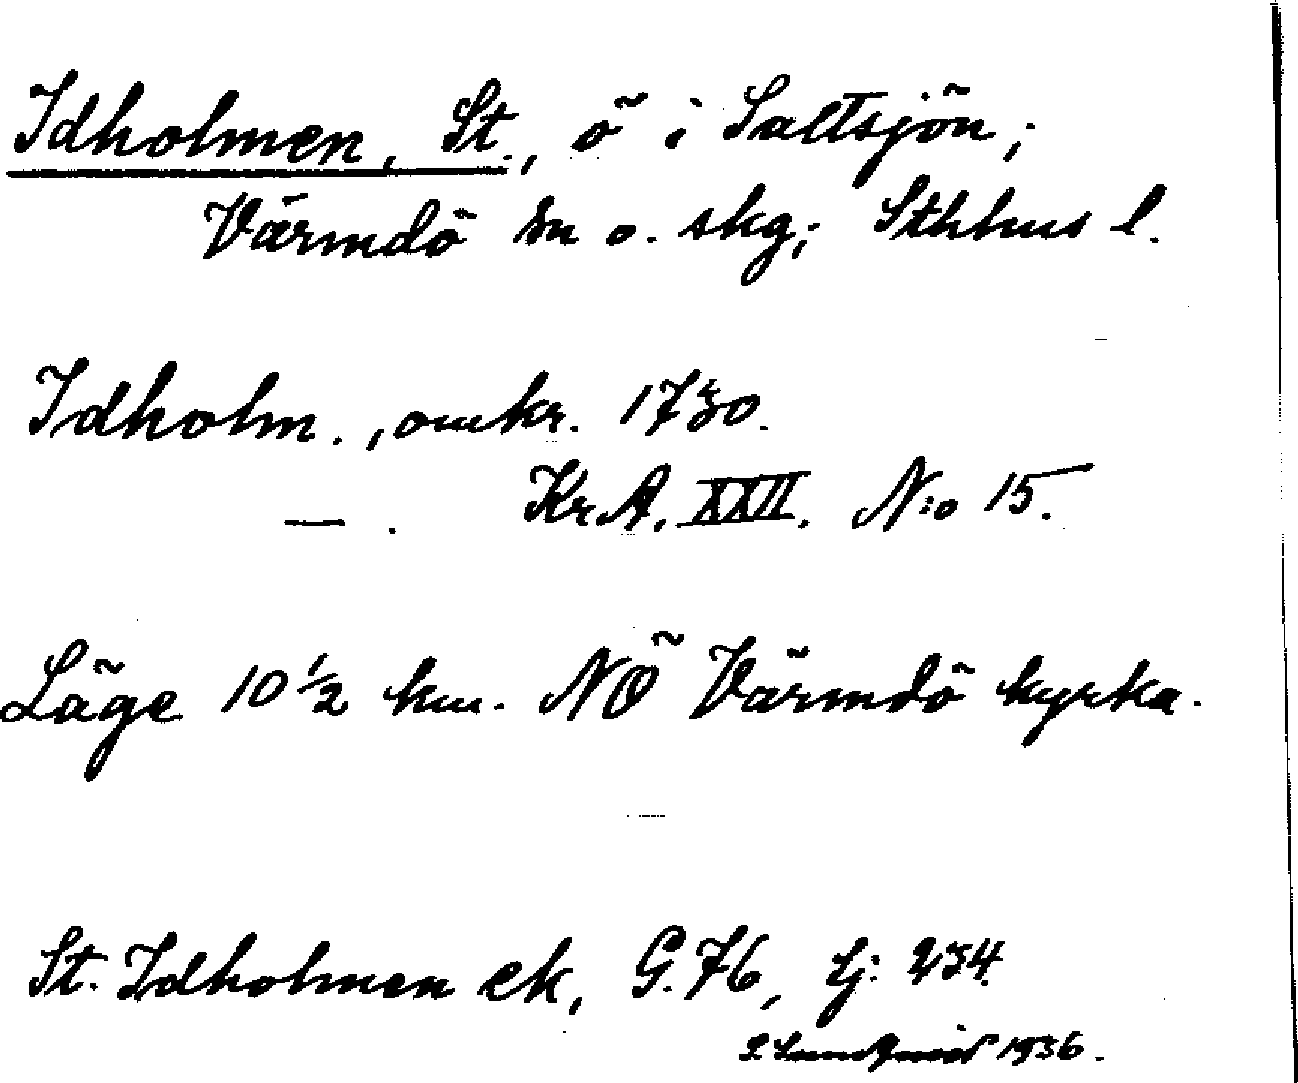 Idholmen, St., ö i Saltsjön;
Värmdö sn o. skg; Sthhus l.
Idholm., omkr. 1730.
— . Kr.A. XXII. N:o 15.
Läge 10 1/2 km. NÖ Värmdö kyrka.
St. Idholmen ek, G. 76, lj: 234.
1936.